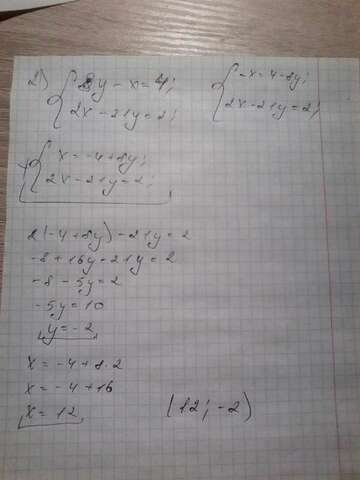 2) { 8y - x = 4; { -x = 4 - 8y;
2x - 21y = 2; 2x - 21y = 2;
{ x = -4 + 8y;
2x - 21y = 2;
2(-4 + 8y) - 21y = 2
-8 + 16y - 21y = 2
-8 - 5y = 2
-5y = 10
y = -2
x = -4 + 8·2
x = -4 + 16
x = 12 (12; -2)